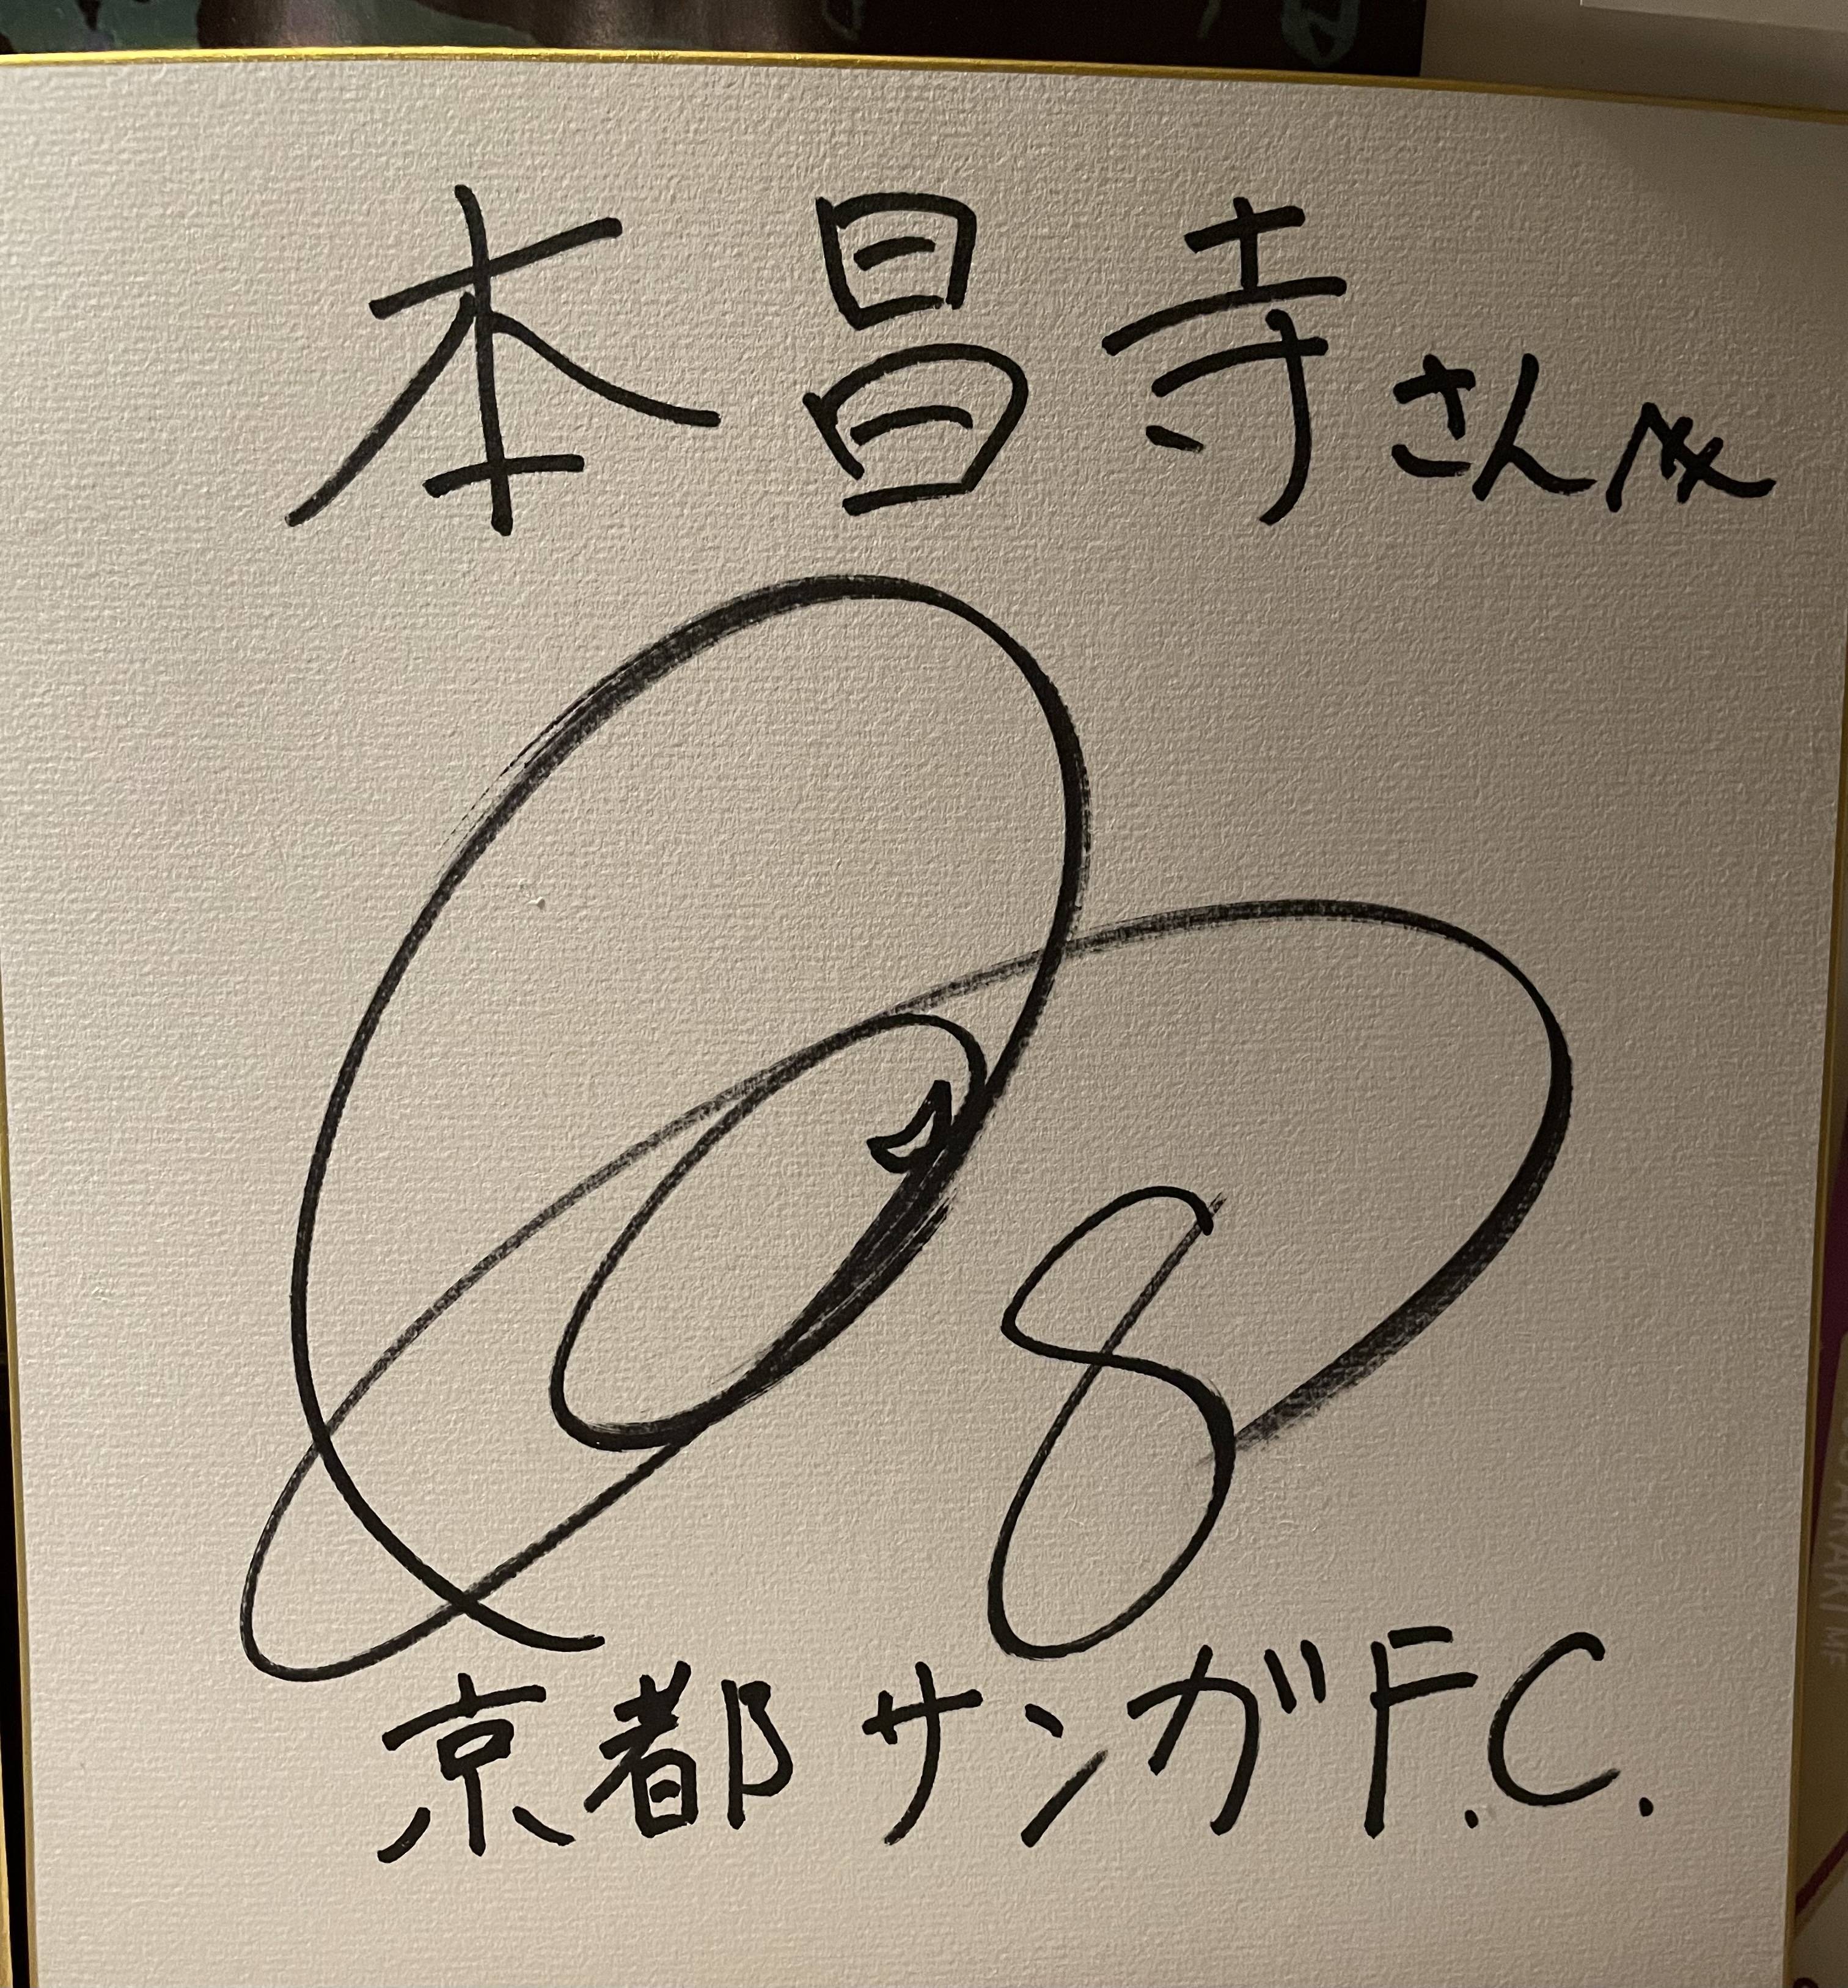 本昌寺さん江
8
京都サンガF.C.